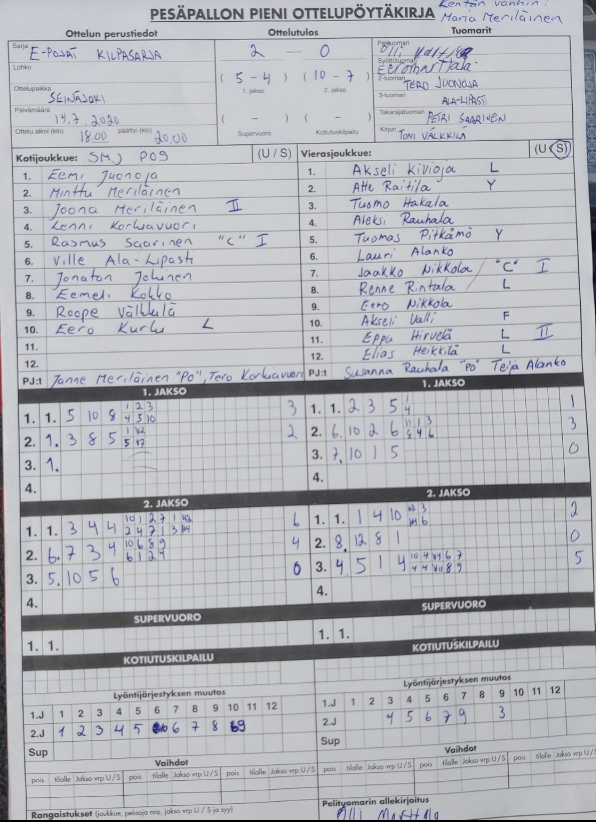 PESÄPALLON PIENI OTTELUPÖYTÄKIRJA
Kentän vanhin:
Maria Meriläinen
Ottelun perustiedot Ottelutulos Tuomarit
Sarja E-POJAT KILPASARJA
2 – 0
Pelituomari
Lohko
(5-4) (10-7)
1. jakso 2. jakso
Syöttötuomari
2-tuomari TERO JUONOJA
Ottelupaikka SEINÄJOKI
3-tuomari ALA-LIPASTI
Päivämäärä 14.7.2020
( - ) ( - )
Takarajatuomari PETRI SAARINEN
Ottelu alkoi (klo) 18.00 päättyi (klo) 20.00
Supervuoro Kotiutuskilpailu
Kirjuri TONI VÄLKKILÄ
Kotijoukkue: SMJ PO9 (U / S)
1. Eemi Juonoja
2. Minttu Meriläinen
3. Joona Meriläinen II
4. Lenni Korkuavuori
5. Rasmus Saarinen "C" I
6. Ville Ala-Lipasti
7. Jonatan
8. Eemeli Kokko
9. Roope Välkkilä
10. Eero L
11.
12.
PJ:t Janne Meriläinen "PO", Tero
Vierasjoukkue: (U / S)
1. Akseli Kivioja L
2. Atte Raitila Y
3. Tuomo Hakala
4. Aleksi Rauhala
5. Tuomas Pitkämö Y
6. Lauri Alanko
7. Jaakko Nikkola "C" I
8. Renne Rintala L
9. Eero Nikkola
10. Akseli Valli F
11. Eppu Hirvelä L II
12. Elias Heikkilä L
PJ:t Susanna Rauhala "PO" Teija Alanko
1. JAKSO
1. 1. 5 10 8 1 2 3 3
4 5 10
2. 1. 3 8 5 2
3. 1.
4.
1. JAKSO
1. 1. 2 3 5 1
2. 6. 10 2 6 3
3. 7. 10 1 5 0
4.
2. JAKSO
1. 1. 3 4 4 6
2. 6. 7 3 4 10 6 8 9 4
3. 5. 10 5 6 0
4.
2. JAKSO
1. 1. 1 4 10 2
2. 8. 12 8 1 0
3. 4. 5 1 4 5
4.
SUPERVUORO
1. 1.
SUPERVUORO
1. 1.
KOTIUTUSKILPAILU
KOTIUTUSKILPAILU
Lyöntijärjestyksen muutos
1.J 1 2 3 4 5 6 7 8 9 10 11 12
2.J 1 2 3 4 5 6 7 8 9
Sup
Lyöntijärjestyksen muutos
1.J 1 2 3 4 5 6 7 8 9 10 11 12
2.J 4 5 6 7 9 3
Sup
Vaihdot
pois tilalle Jakso vrp U / S pois tilalle Jakso vrp U / S pois tilalle Jakso vrp U / S
Vaihdot
pois tilalle Jakso vrp U / S pois tilalle Jakso vrp U / S pois tilalle Jakso vrp U / S
Rangaistukset (joukkue, pelaaja nro, jakso vrp U / S ja syy)
Pelituomarin allekirjoitus